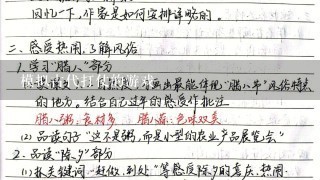 回忆一下,作家是如何安排详略的。
二、感受热闹,了解风俗
1.学习“腊八”部分
画出最能体现“腊八节”风俗特点
的地方。结合自己过年的感受作批注
腊八粥:食材多 腊八蒜:色味双美
(2)品读句子“这不是粥,而是小型的农业产品展览会”
2.品读“除夕”部分
(1)抓关键词“赶做、到处”等感受除夕的喜庆、热闹
模拟古代打仗的游戏